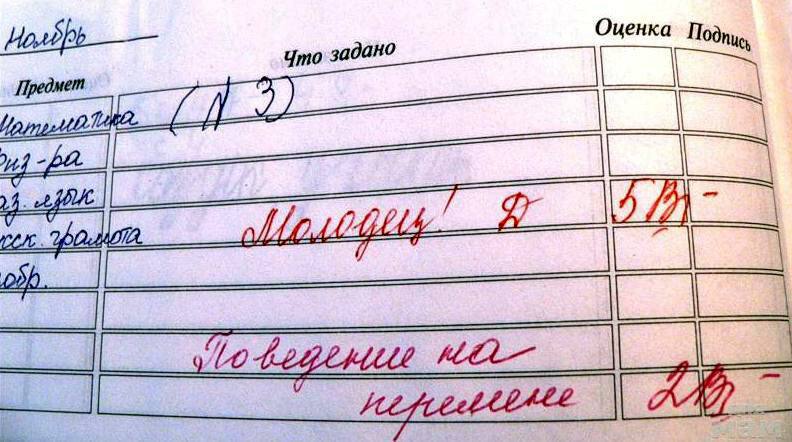 Ноябрь
Предмет Что задано Оценка Подпись
Математика (N 3)
физ-ра
каз. язык
русск. грамота Молодец! Д 5
Поведение на
перемене 2